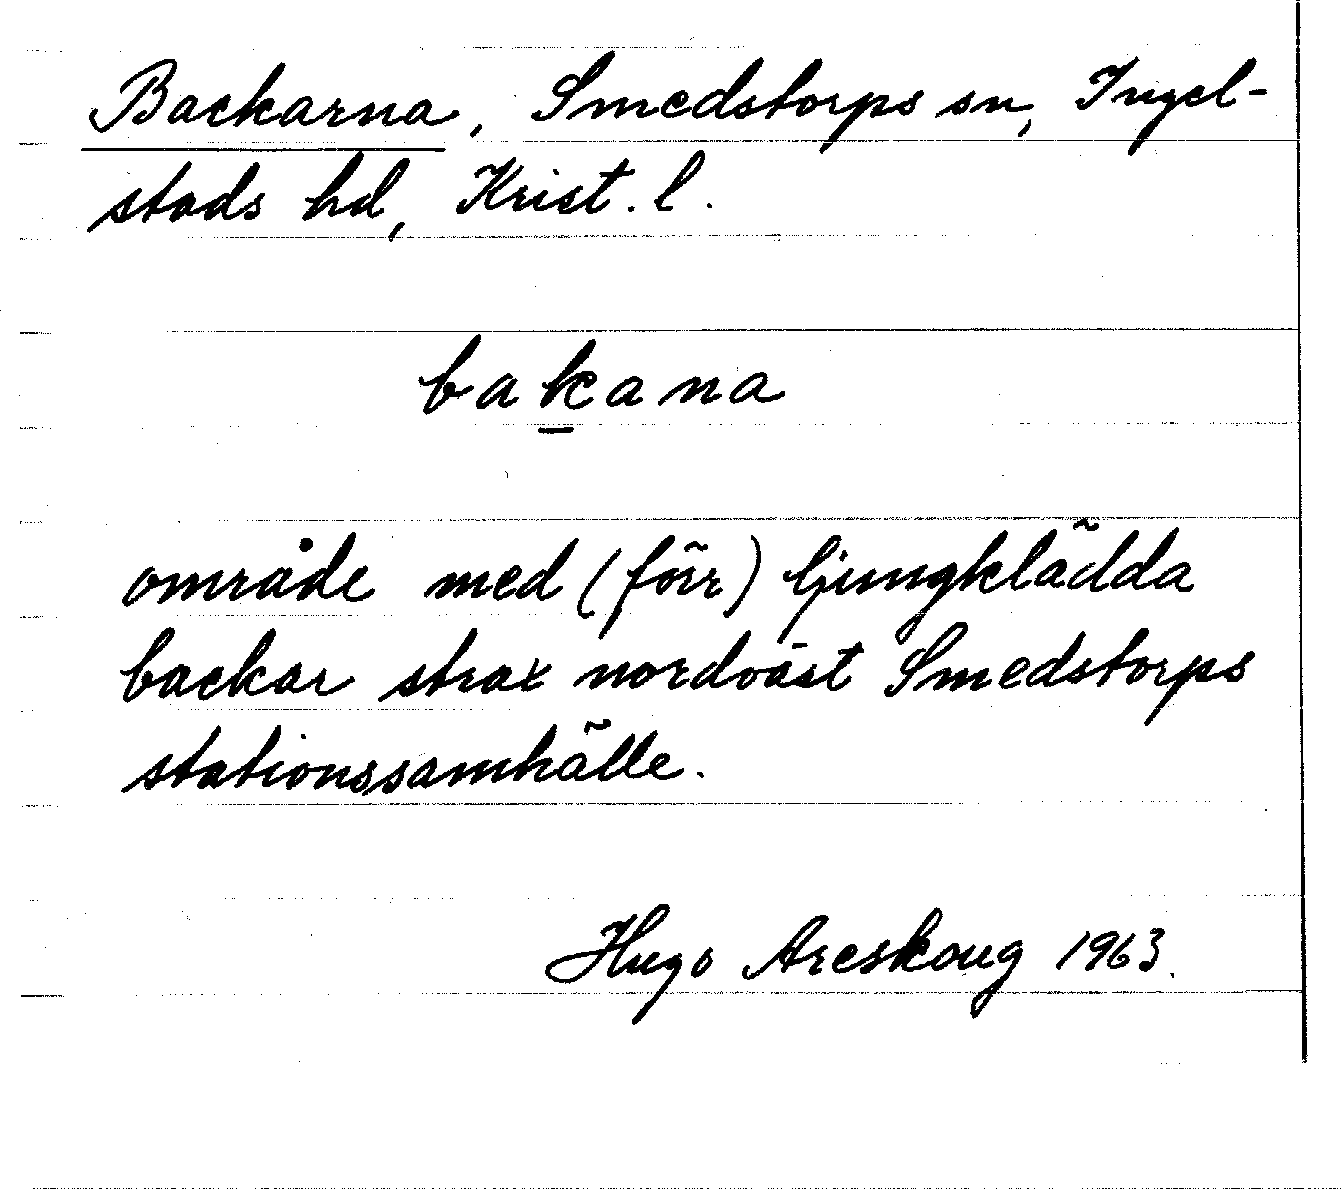 Backarna, Smedstorps sn, Ingel-
stads hd, Krist. l.
bakana
område med (förr) ljungklädda
backar strax nordväst Smedstorps
stationssamhälle.
Hugo Areskoug 1963.